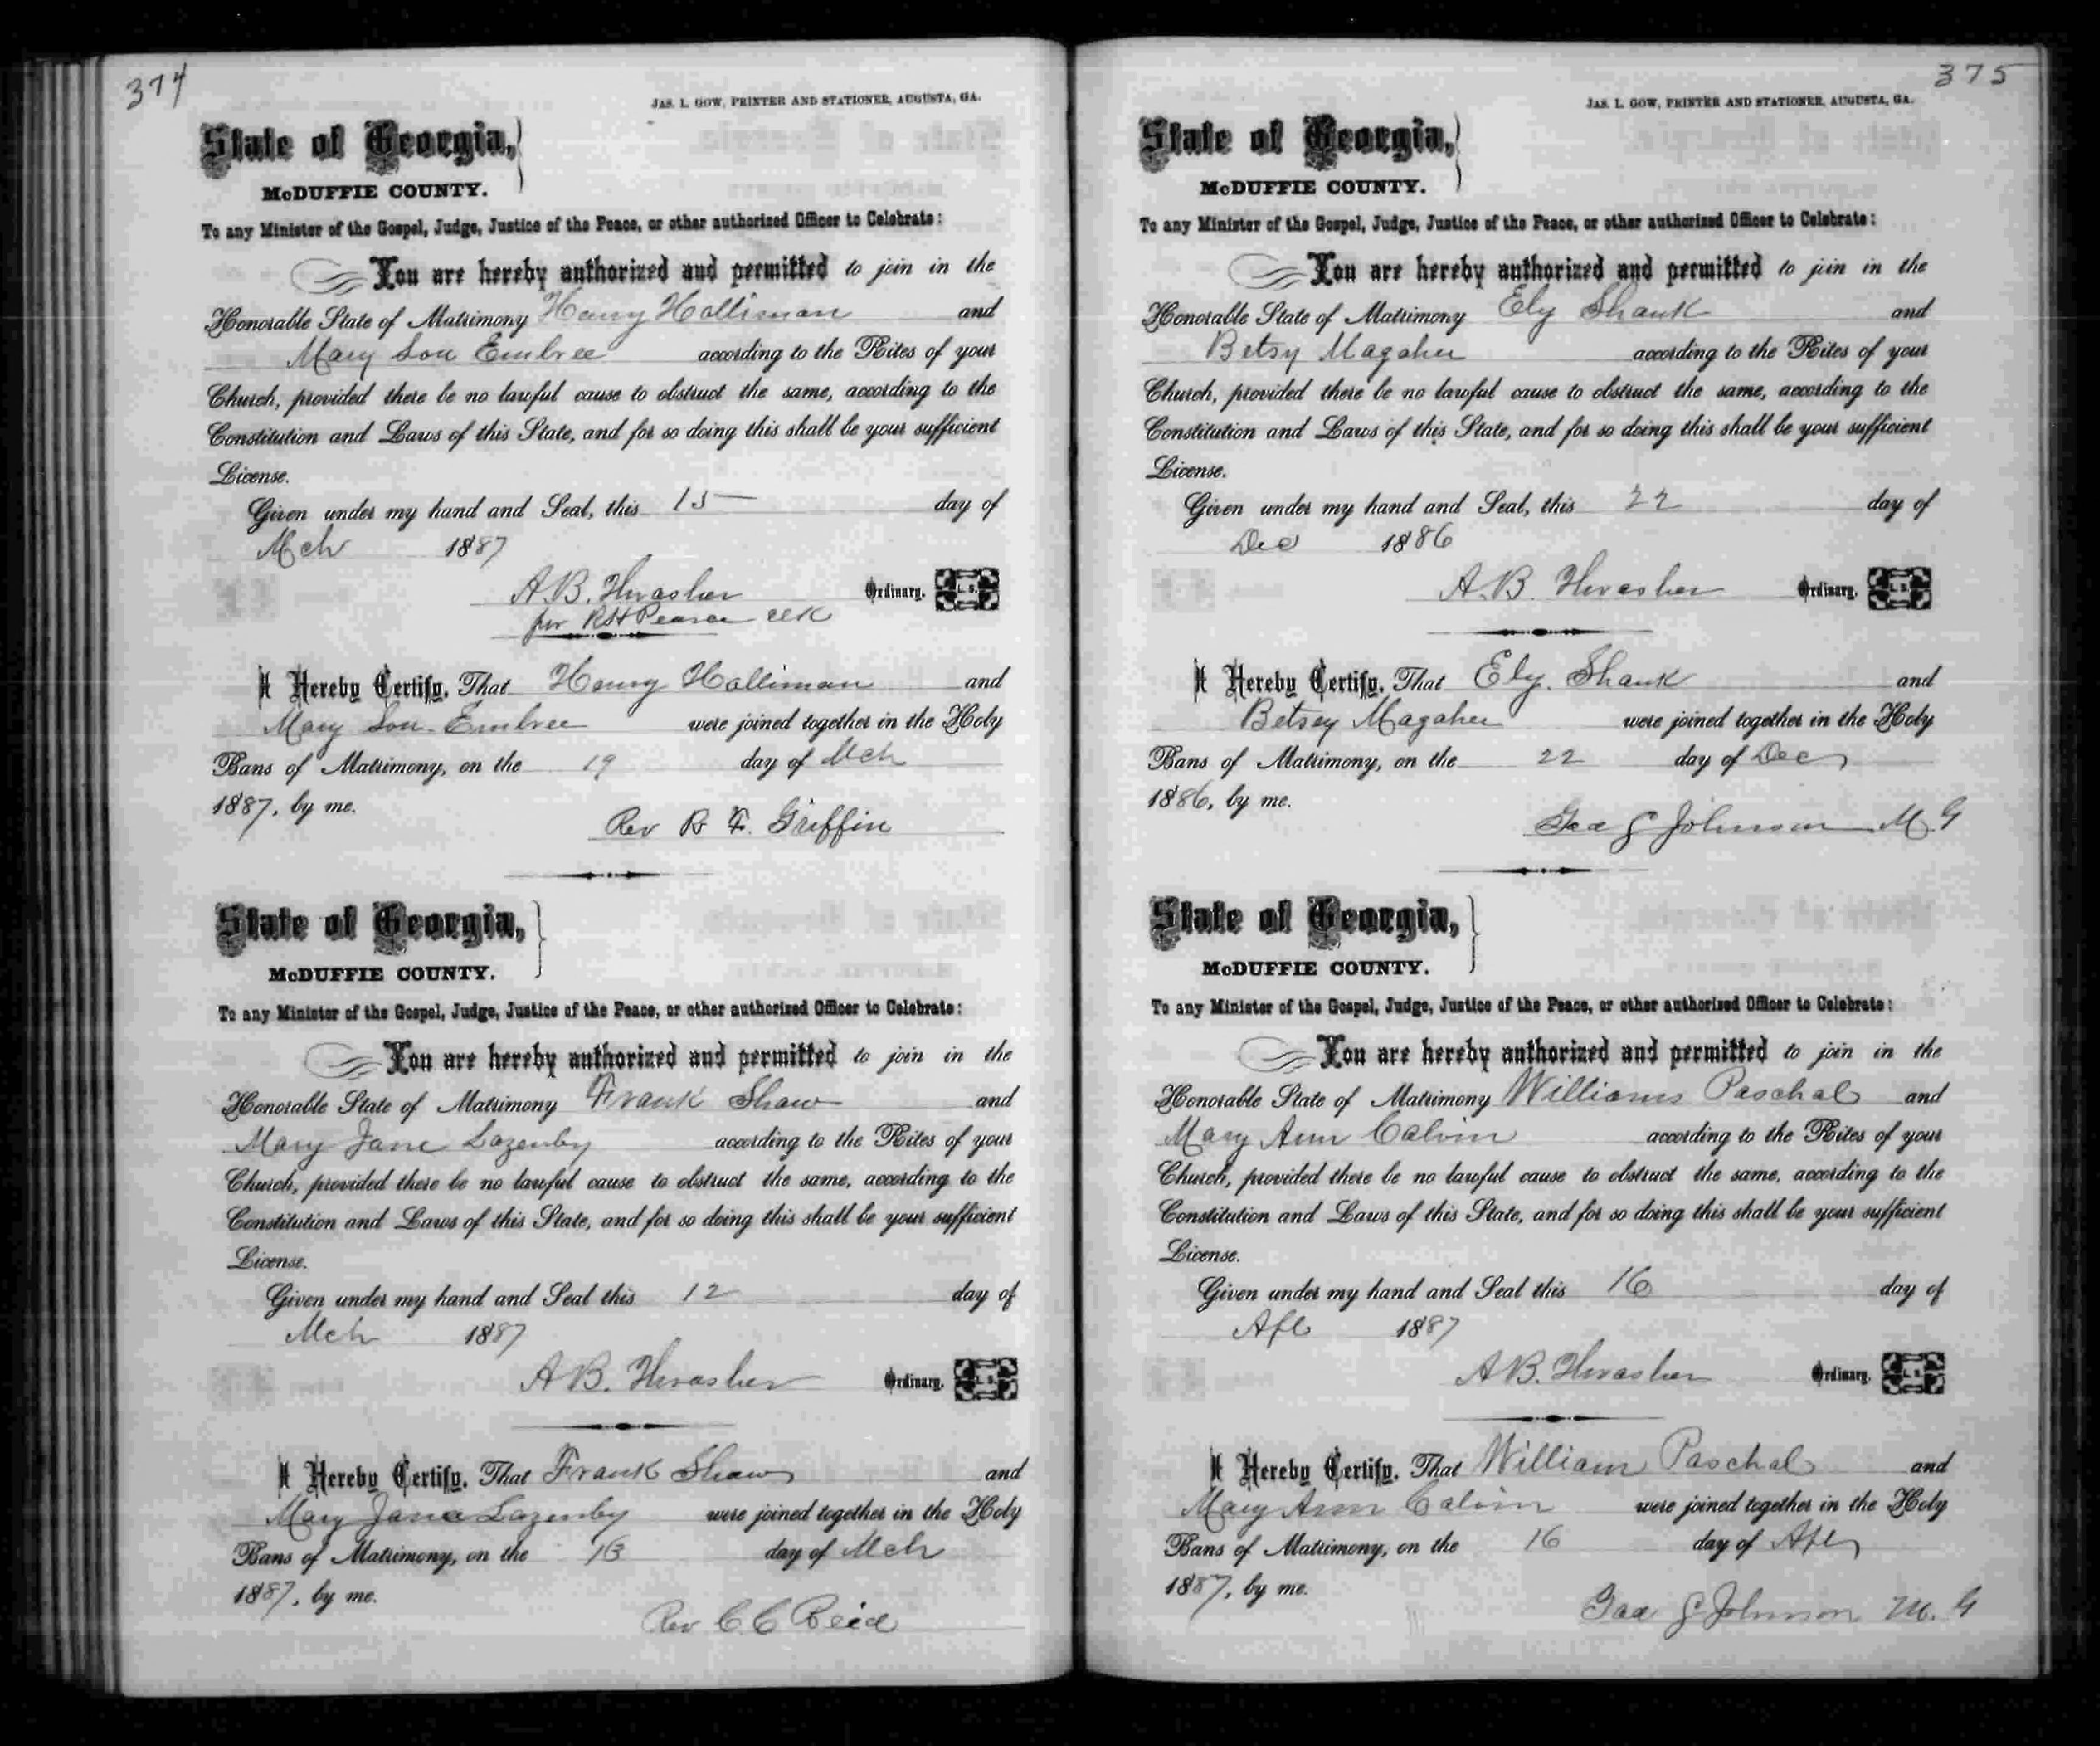 374
JAS. L. GOW, PRINTER AND STATIONER, AUGUSTA, GA.
State of Georgia,
McDUFFIE COUNTY.
To any Minister of the Gospel, Judge, Justice of the Peace, or other authorized Officer to Celebrate:
You are hereby authorized and permitted to join in the
Honorable State of Matrimony Henry Holliman and
Mary Lou Embree according to the Rites of your
Church, provided there be no lawful cause to obstruct the same, according to the
Constitution and Laws of this State, and for so doing this shall be your sufficient
License.
Given under my hand and Seal, this 15 day of
Mch 1887
A. B. Thrasher Ordinary. L. S.
per RH Pearce Clk
I Hereby Certify, That Henry Holliman and
Mary Lou Embree were joined together in the Holy
Bans of Matrimony, on the 19 day of Mch
1887, by me.
Rev R F. Griffin
State of Georgia,
McDUFFIE COUNTY.
To any Minister of the Gospel, Judge, Justice of the Peace, or other authorized Officer to Celebrate:
You are hereby authorized and permitted to join in the
Honorable State of Matrimony Frank Shaw and
Mary Jane Lazenby according to the Rites of your
Church, provided there be no lawful cause to obstruct the same, according to the
Constitution and Laws of this State, and for so doing this shall be your sufficient
License.
Given under my hand and Seal this 12 day of
Mch 1887
A B. Thrasher Ordinary. L. S.
I Hereby Certify, That Frank Shaw and
Mary Jane Lazenby were joined together in the Holy
Bans of Matrimony, on the 13 day of Mch
1887, by me.
Rev C. C Reid
375
JAS. L. GOW, PRINTER AND STATIONER, AUGUSTA, GA.
State of Georgia,
McDUFFIE COUNTY.
To any Minister of the Gospel, Judge, Justice of the Peace, or other authorized Officer to Celebrate:
You are hereby authorized and permitted to join in the
Honorable State of Matrimony Ely Shank and
Betsy Magahee according to the Rites of your
Church, provided there be no lawful cause to obstruct the same, according to the
Constitution and Laws of this State, and for so doing this shall be your sufficient
License.
Given under my hand and Seal, this 22 day of
Dec 1886
A. B. Thrasher Ordinary. L. S.
I Hereby Certify, That Ely. Shank and
Betsey Magahee were joined together in the Holy
Bans of Matrimony, on the 22 day of Dec
1886, by me.
Johnson M. G
State of Georgia,
McDUFFIE COUNTY.
To any Minister of the Gospel, Judge, Justice of the Peace, or other authorized Officer to Celebrate:
You are hereby authorized and permitted to join in the
Honorable State of Matrimony Williams Paschal and
Mary Ann Calvin according to the Rites of your
Church, provided there be no lawful cause to obstruct the same, according to the
Constitution and Laws of this State, and for so doing this shall be your sufficient
License.
Given under my hand and Seal this 16 day of
Apl 1887
A B. Thrasher Ordinary. L. S.
I Hereby Certify, That William Paschal and
Mary Ann Calvin were joined together in the Holy
Bans of Matrimony, on the 16 day of Apl
1887, by me.
Johnson M. G